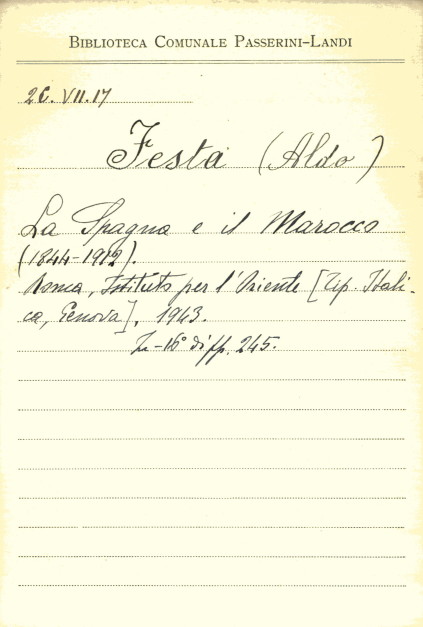 BIBLIOTECA COMUNALE PASSERINI-LANDI
2C. VII. 17
Festa (Aldo)
La Spagna e il Marocco
(1844-1912).
Roma, Istituto per l'Oriente [Tip. Itali-
ca, Genova], 1943.
In-16° di pp. 245.